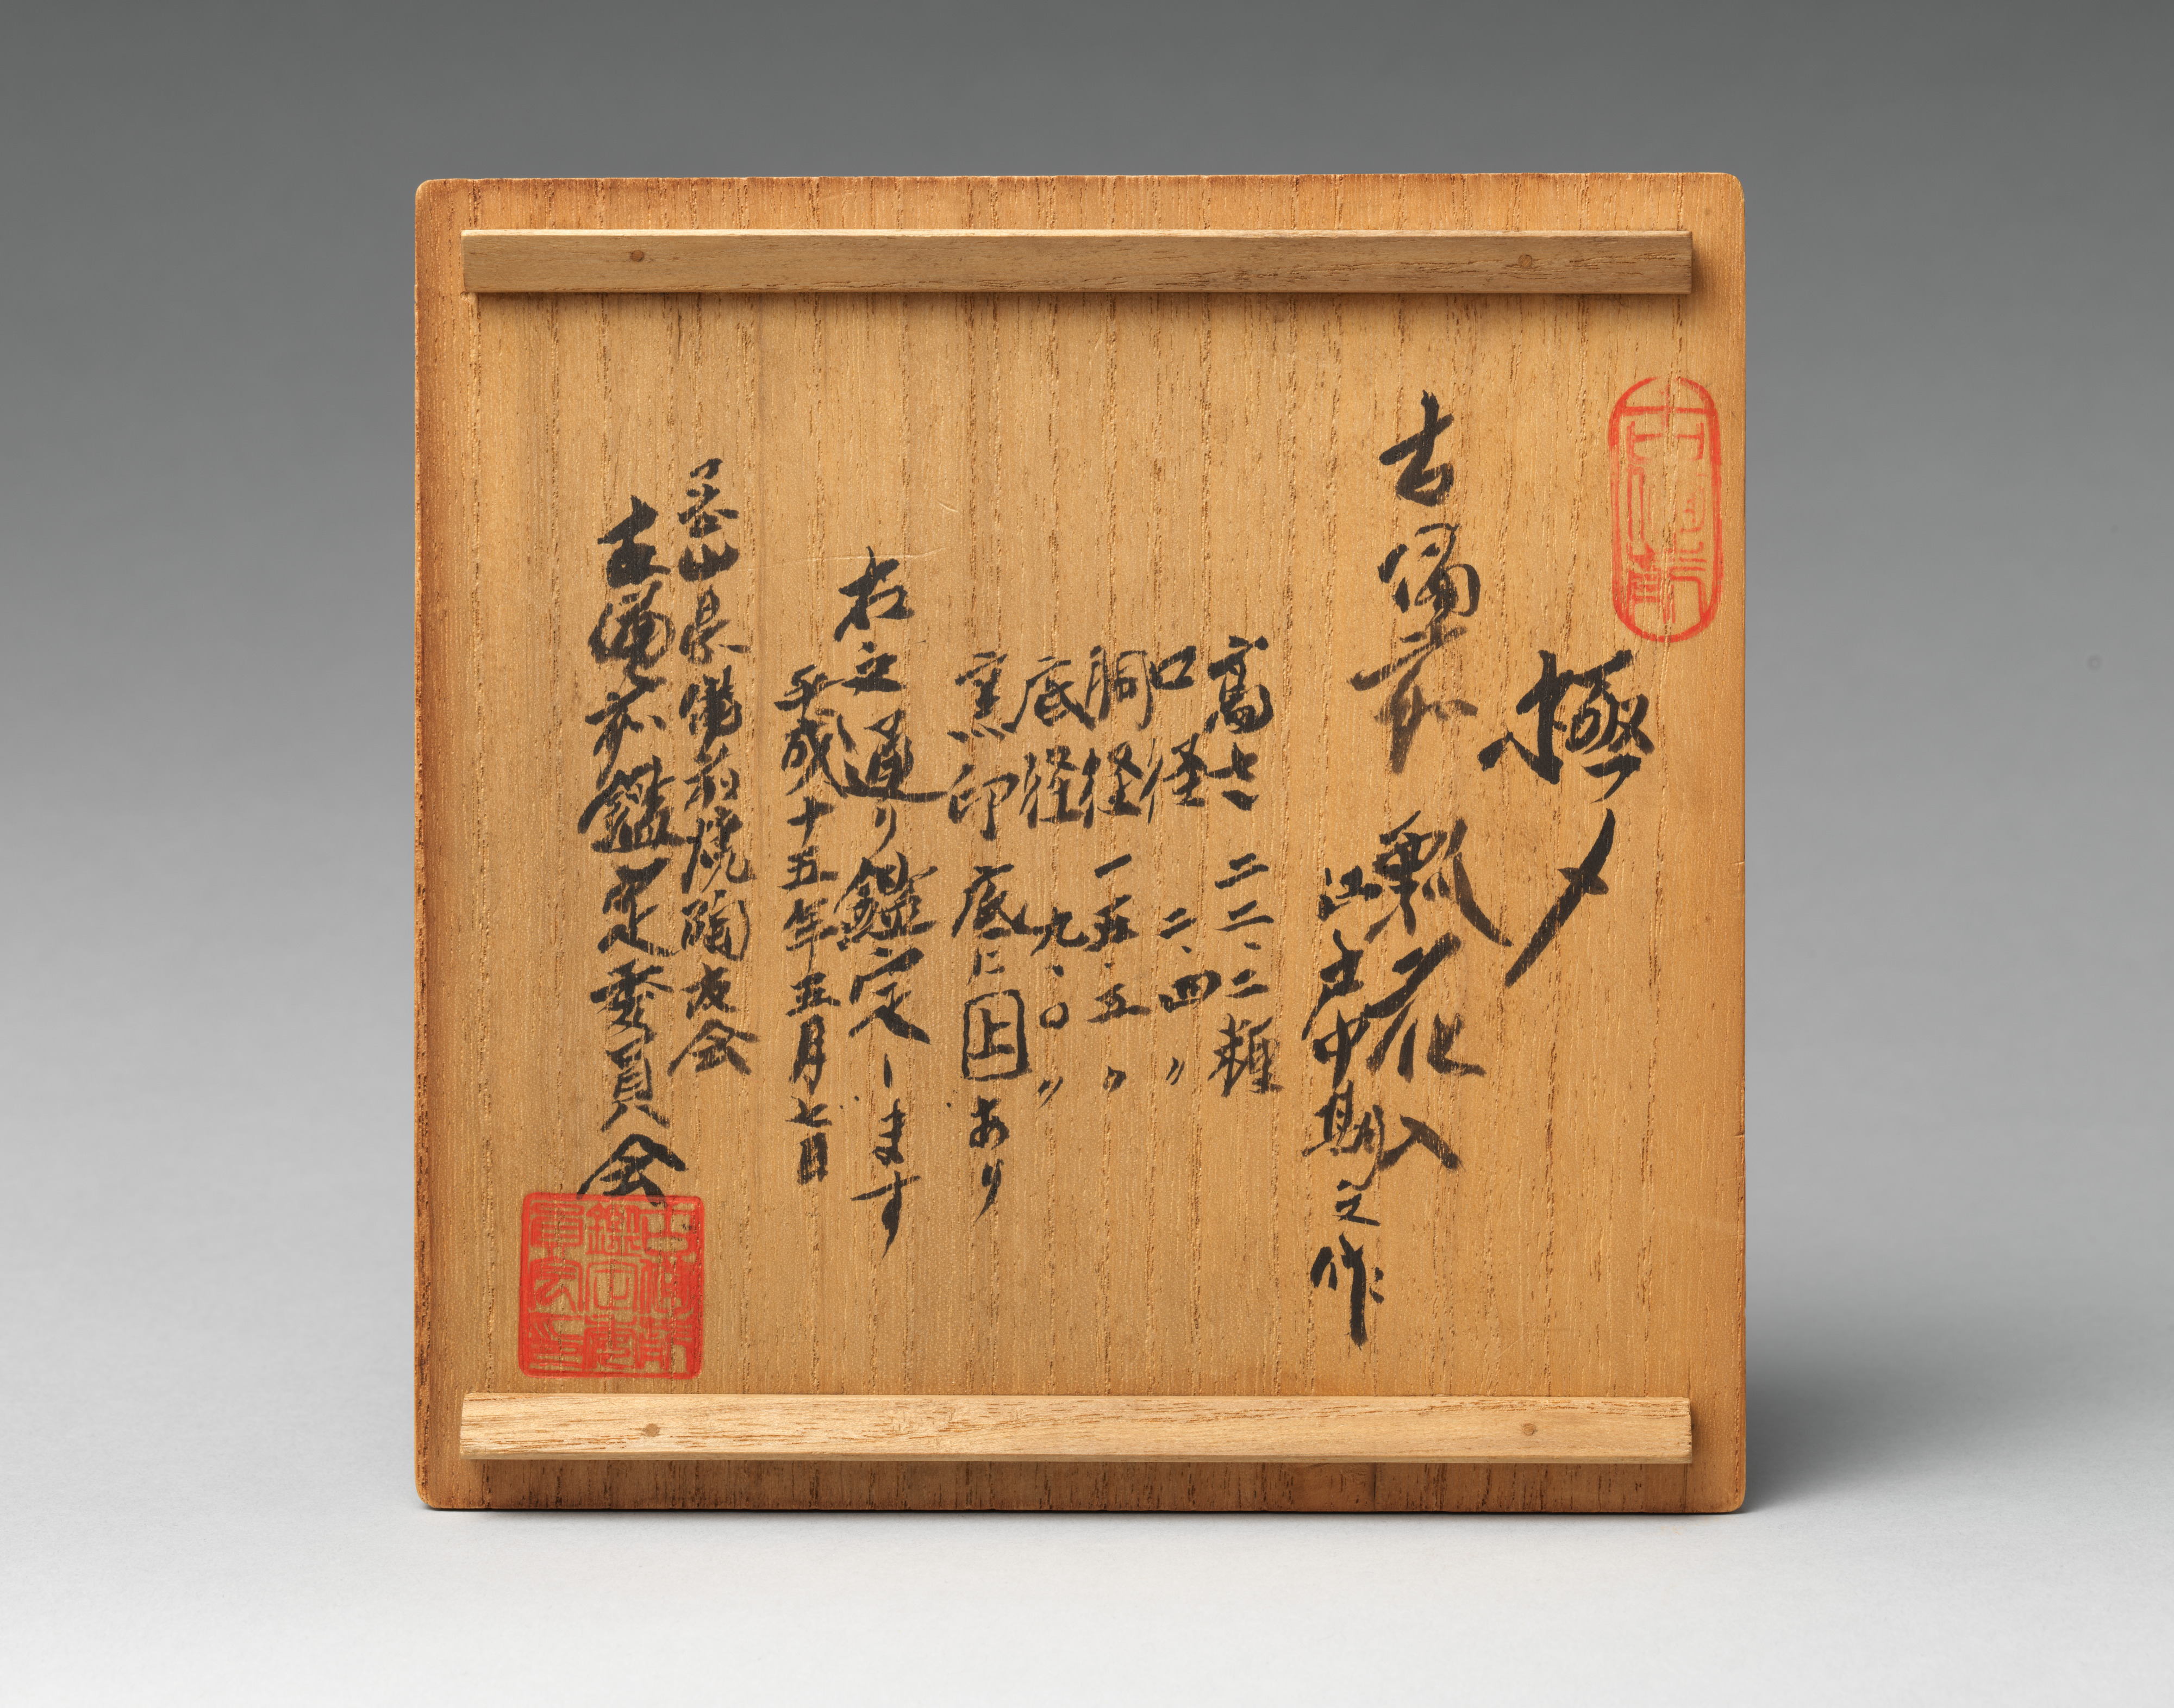 極メ
古備前 瓢花入
江戸中期之作
高サ 二二、二糎
口径 二、四〃
胴径 一五、五〃
底径 九、〇〃
窯印 底に上あり
右之通り鑑定します
平成十五年五月七日
岡山県備前焼陶友会
古備前鑑定委員会
古備前鑑定委員会之印